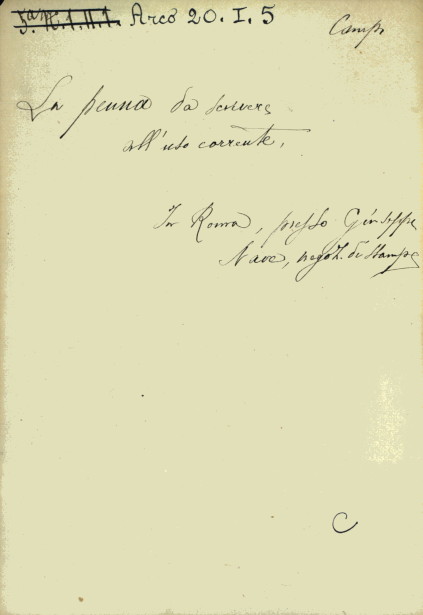 Arco 20. I. 5
Campi
La penna da scrivere
all'uso corrente,
In Roma, presso Giuseppe
Nave, negoz. di stampe
C